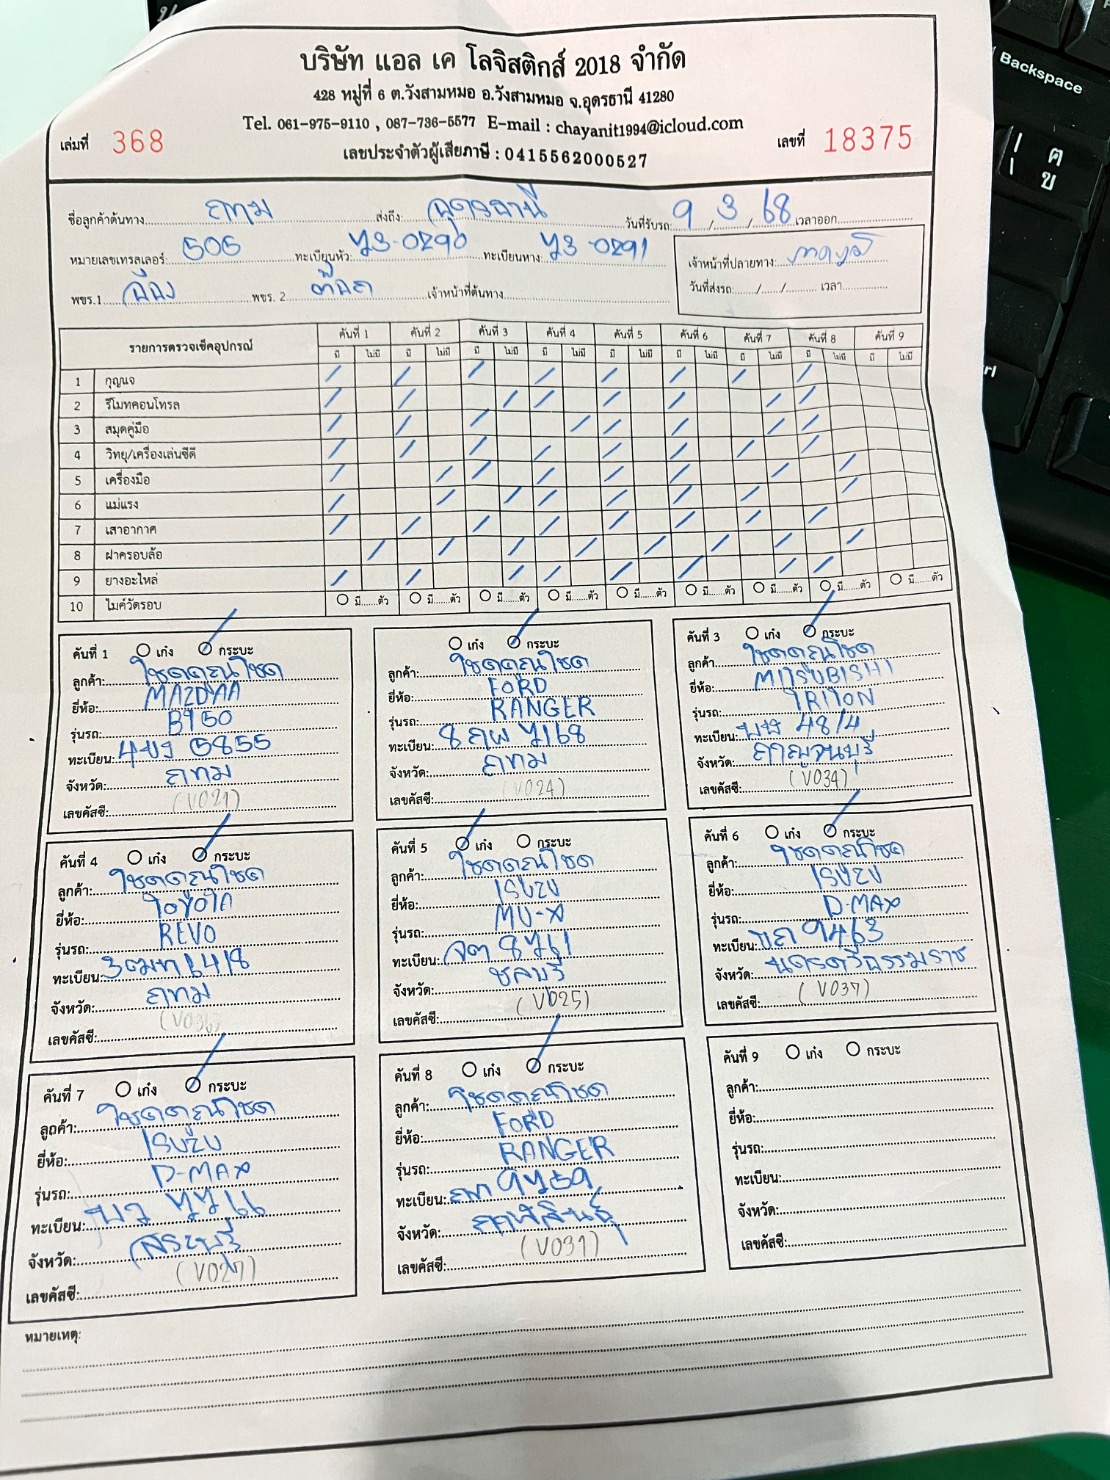 บริษัท แอล เค โลจิสติกส์ 2018 จำกัด
428 หมู่ที่ 6 ต.วังสามหมอ อ.วังสามหมอ จ.อุดรธานี 41280
Tel. 061-975-9110 , 087-736-5577 E-mail : chayanit1994@icloud.com
เล่มที่ 368 เลขประจำตัวผู้เสียภาษี : 0415562000527 เลขที่ 18375
ชื่อลูกค้าต้นทาง กทม ส่งถึง: อุดรธานี วันที่รับรถ: 9 / 3 / 68 เวลาออก
หมายเลขเทรลเลอร์: 505 ทะเบียนหัว: 73-0290 ทะเบียนหาง: 73-0291
เจ้าหน้าที่ปลายทาง:
พขร.1 พขร. 2 เจ้าหน้าที่ต้นทาง
วันที่ส่งรถ / / เวลา
รายการตรวจเช็คอุปกรณ์ คันที่ 1 คันที่ 2 คันที่ 3 คันที่ 4 คันที่ 5 คันที่ 6 คันที่ 7 คันที่ 8 คันที่ 9
มี ไม่มี มี ไม่มี มี ไม่มี มี ไม่มี มี ไม่มี มี ไม่มี มี ไม่มี มี ไม่มี มี ไม่มี
1 กุญแจ
2 รีโมทคอนโทรล
3 สมุดคู่มือ
4 วิทยุ/เครื่องเล่นซีดี
5 เครื่องมือ
6 แม่แรง
7 เสาอากาศ
8 ฝาครอบล้อ
9 ยางอะไหล่
10 ไมค์วัดรอบ มี ตัว มี ตัว มี ตัว มี ตัว มี ตัว มี ตัว มี ตัว มี ตัว มี ตัว
คันที่ 1 เก๋ง กระบะ
ลูกค้า: โชคคูณโชค
ยี่ห้อ:
รุ่นรถ: BT50
ทะเบียน: 5855
จังหวัด: กทม
เลขคัสซี: (V021)
เก๋ง กระบะ
ลูกค้า: โชคคูณโชค
ยี่ห้อ: FORD
รุ่นรถ: RANGER
ทะเบียน: 7168
จังหวัด: กทม
เลขคัสซี: (V024)
คันที่ 3 เก๋ง กระบะ
ลูกค้า: โชคคูณโชค
ยี่ห้อ: MITSUBISHI
รุ่นรถ: TRITON
ทะเบียน: 4814
จังหวัด: กาญจนบุรี
เลขคัสซี: (V034)
คันที่ 4 เก๋ง กระบะ
ลูกค้า: โชคคูณโชค
ยี่ห้อ: TOYOTA
รุ่นรถ: REVO
ทะเบียน: 6418
จังหวัด: กทม
เลขคัสซี:
คันที่ 5 เก๋ง กระบะ
ลูกค้า: โชคคูณโชค
ยี่ห้อ: ISUZU
รุ่นรถ: MU-X
ทะเบียน: 8761
จังหวัด: ชลบุรี
เลขคัสซี: (V025)
คันที่ 6 เก๋ง กระบะ
ลูกค้า: โชคคูณโชค
ยี่ห้อ: ISUZU
รุ่นรถ: D-MAX
ทะเบียน: 9463
จังหวัด: นครศรีธรรมราช
เลขคัสซี: (V037)
คันที่ 7 เก๋ง กระบะ
ลูกค้า: โชคคูณโชค
ยี่ห้อ: ISUZU
รุ่นรถ: D-MAX
ทะเบียน:
จังหวัด: สระบุรี
เลขคัสซี: (V027)
คันที่ 8 เก๋ง กระบะ
ลูกค้า: โชคคูณโชค
ยี่ห้อ: FORD
รุ่นรถ: RANGER
ทะเบียน: 9759
จังหวัด: กาฬสินธุ์
เลขคัสซี: (V031)
คันที่ 9 เก๋ง กระบะ
ลูกค้า:
ยี่ห้อ:
รุ่นรถ:
ทะเบียน:
จังหวัด:
เลขคัสซี:
หมายเหตุ:
Backspace
ฅ
ข